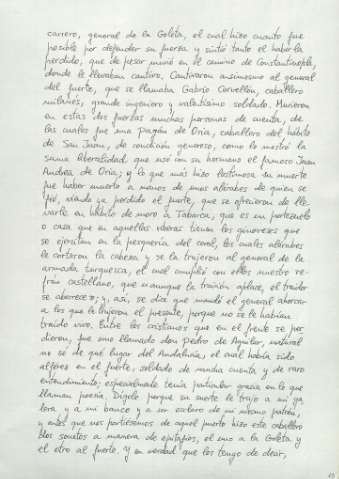 carrero, general de la Goleta, el cual hizo cuanto fue
posible por defender su fuerza y sintió tanto el haberla
perdido, que de pesar murió en el camino de Constantinopla,
donde le llevaban cautivo. Cautivaron ansimesmo al general
del fuerte, que se llamaba Gabrio Cervellón, caballero
milanés, grande ingeniero y valentísimo soldado. Murieron
en estas dos fuerzas muchas personas de cuenta, de
las cuales fue una Pagán de Oria, caballero del hábito
de San Juan, de condición generoso, como lo mostró la
suma liberalidad que usó con su hermano el famoso Juan
Andrea de Oria; y lo que más hizo lastimosa su muerte
fue haber muerto a manos de unos alárabes de quien se
fió, viendo ya perdido el fuerte, que se ofrecieron de lle-
varle en hábito de moro a Tabarca, que es un portezuelo
o casa que en aquellas riberas tienen los ginoveses que
se ejercitan en la pesquería del coral, los cuales alárabes
le cortaron la cabeza y se la trujeron al general de la
armada turquesca, el cual cumplió con ellos nuestro re-
frán castellano, que "aunque la traición aplace, el traidor
se aborrece"; y, así, se dice que mandó el general ahorcar
a los que le trujeron el presente, porque no se le habían
traído vivo. Entre los cristianos que en el fuerte se per-
dieron, fue uno llamado don Pedro de Aguilar, natural
no sé de qué lugar del Andalucía, el cual había sido
alférez en el fuerte, soldado de mucha cuenta y de raro
entendimiento; especialmente tenía particular gracia en lo que
llaman poesía. Dígolo porque su suerte le trajo a mi ga-
lera y a mi banco y a ser esclavo de mi mismo patrón,
y antes que nos partiésemos de aquel puerto hizo este caballero
dos sonetos a manera de epitafios, el uno a la Goleta y
el otro al fuerte. Y en verdad que los tengo de decir,